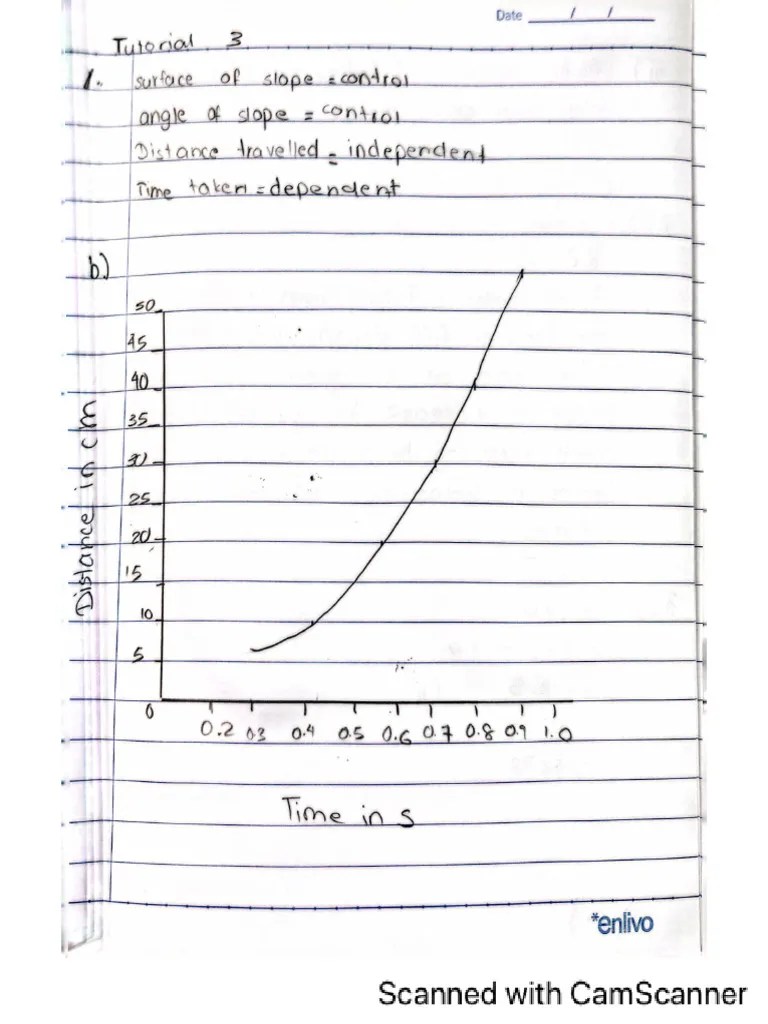 Date / /
Tutorial 3
1. surface of slope = control
angle of slope = control
Distance travelled = independent
Time taken = dependent
b)
50
45
40
35
30
25
20
15
10
5
0
0.2 0.3 0.4 0.5 0.6 0.7 0.8 0.9 1.0
Distance in cm
Time in s
*enlivo
Scanned with CamScanner